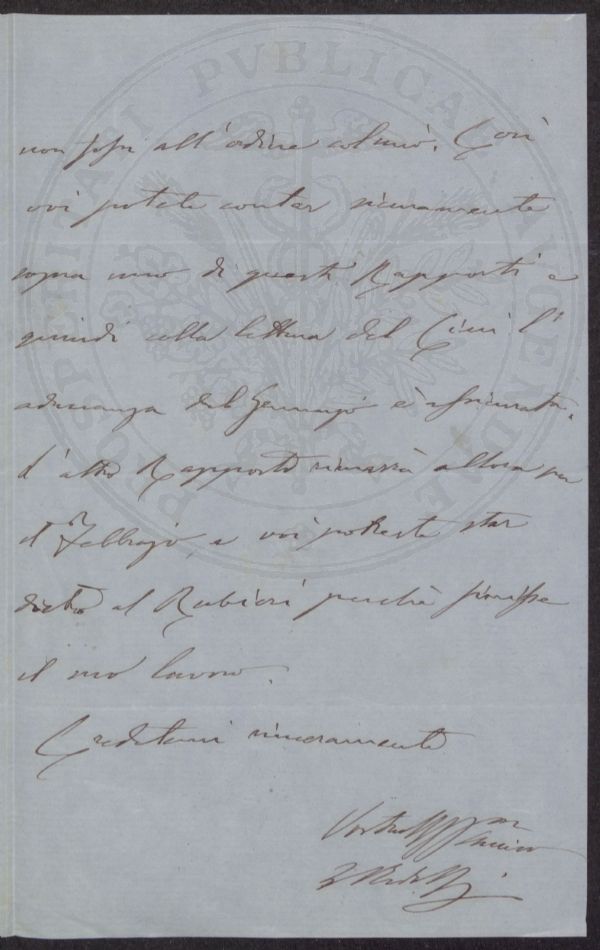 PROSPERITATI PVBLICAE AVGENDAE
non fosse all'ordine col mio. Così
voi potete contar sicuramente
sopra uno di questi Rapporti e
quindi colla lettura del Cini l'
adunanza del Gennajo è assicurata.
L'altro Rapporto rimarrà allora per
il Febbrajo, e voi potreste star
dietro al Rubieri perchè finisse
il suo lavoro.
Credetemi sinceramente
Vostro Aff.mo Amico